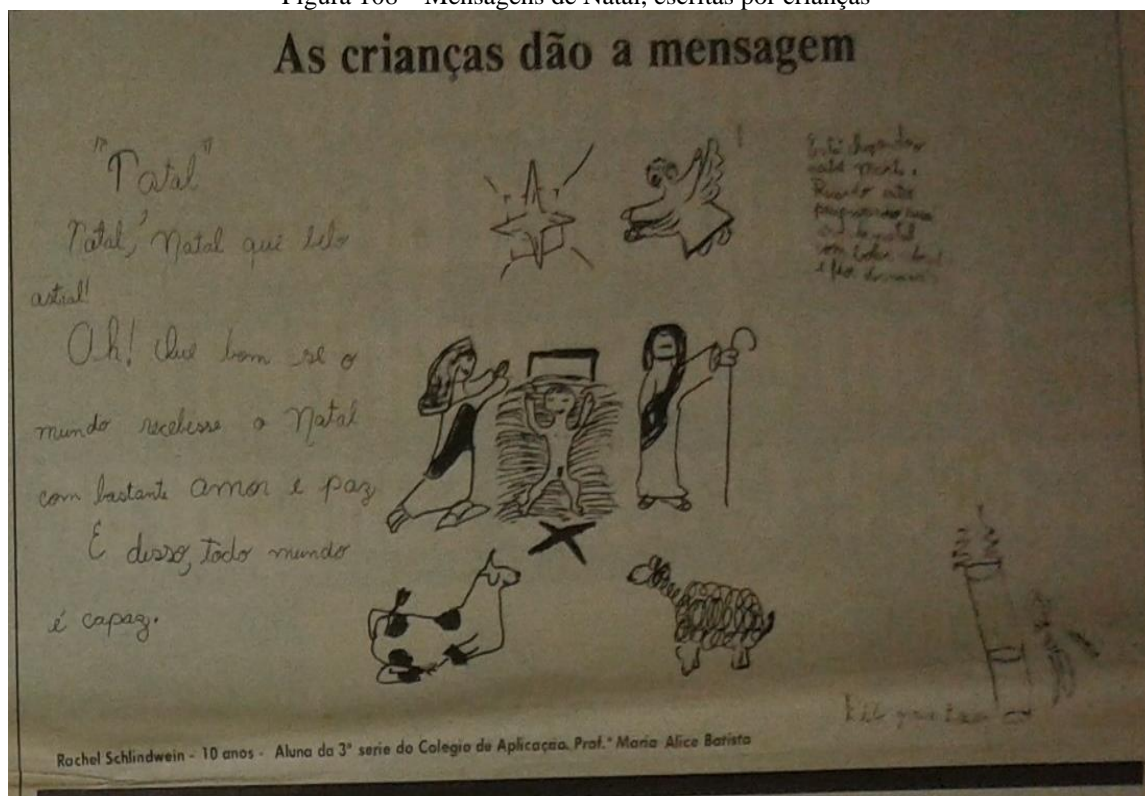 Figura 108 – Mensagens de Natal, escritas por crianças
As crianças dão a mensagem
"Natal"
Natal, Natal que belo
astral!
Oh! Que bom se o
mundo recebesse o Natal
com bastante amor e paz
E disso, todo mundo
é capaz.
Está chegando
Rachel Schlindwein - 10 anos - Aluna da 3ª serie do Colegio de Aplicação. Prof.ª Maria Alice Batista